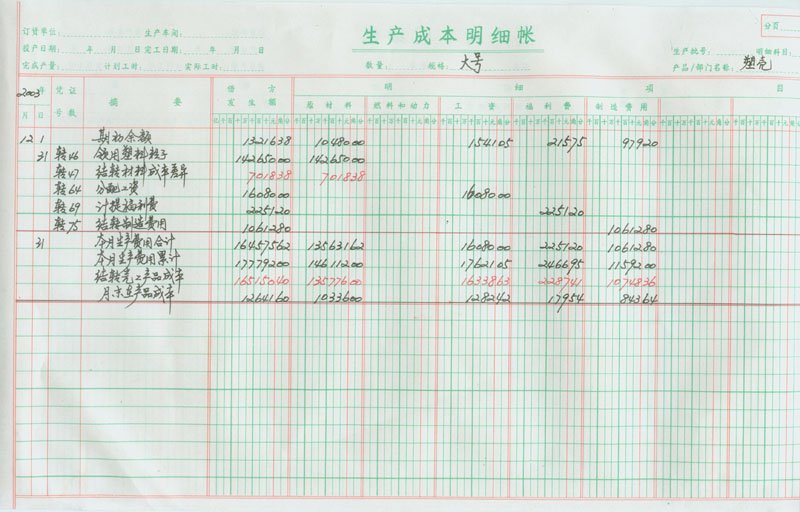 生产成本明细帐
分页
订货单位: 生产车间:
投产日期: 年 月 日 完工日期: 年 月 日
生产批号: 明细科目
完成产量: 计划工时: 实际工时:
数量: 规格: 大号
产品/部门名称: 塑壳
2003年 凭证 摘要 借方 明 细 项 目
月 日 号数 发生额 原材料 燃料和动力 工资 福利费 制造费用
12 1 期初余额 1321638 1048000 154105 21575 97920
31 转46 领用塑料粒子 14265000 14265000
转47 结转材料成本差异 701838 701838
转64 分配工资 1608000 1608000
转69 计提福利费 225120 225120
转75 结转制造费用 1061280 1061280
31 本月生产费用合计 16457562 13563162 1608000 225120 1061280
本月生产费用累计 17779200 14611200 1762105 246695 1159200
结转完工产品成本 16515040 13577600 1633863 228741 1074836
月末在产品成本 1264160 1033600 128242 17954 84364